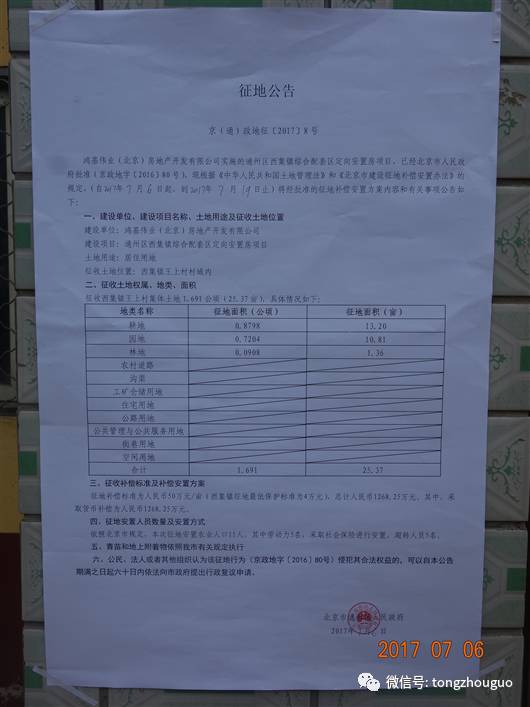 征地公告
京（通）政地征〔2017〕8号
鸿基伟业（北京）房地产开发有限公司实施的通州区西集镇综合配套区定向安置房项目，已经北京市人民政
府批准（京政地字〔2016〕80号），现根据《中华人民共和国土地管理法》和《北京市建设征地补偿安置办法》的
规定，（自2017年7月6日起，到2017年7月19日止）将经批准的征地补偿安置方案内容和有关事项公告如
下：
一、建设单位、建设项目名称、土地用途及征收土地位置
建设单位：鸿基伟业（北京）房地产开发有限公司
建设项目：通州区西集镇综合配套区定向安置房项目
土地用途：居住用地
征收土地位置：西集镇王上村村域内
二、征收土地权属、地类、面积
征收西集镇王上村集体土地1.691公顷（25.37亩），具体情况如下：
地类名称 征地面积（公顷） 征地面积（亩）
耕地 0.8798 13.20
园地 0.7204 10.81
林地 0.0908 1.36
农村道路
沟渠
工矿仓储用地
住宅用地
公路用地
公共管理与公共服务用地
街巷用地
空闲用地
合计 1.691 25.37
三、征收补偿标准及补偿安置方案
征地补偿标准为人民币50万元/亩（西集镇征地最低保护标准为4万元），总计人民币1268.25万元。其中，采
取货币补偿为人民币1268.25万元。
四、征地安置人员数量及安置方式
依照北京市规定，本次征地安置农业人口11人，其中劳动力5名，采取社会保险进行安置，超转人员5名。
五、青苗和地上附着物依照我市有关规定执行
六、公民、法人或者其他组织认为该征地行为（京政地字〔2016〕80号）侵犯其合法权益的，可以自本公告
期满之日起六十日内依法向市政府提出行政复议申请。
北京市通州区人民政府
2017年7月6日
2017 07 06
微信号: tongzhouguo